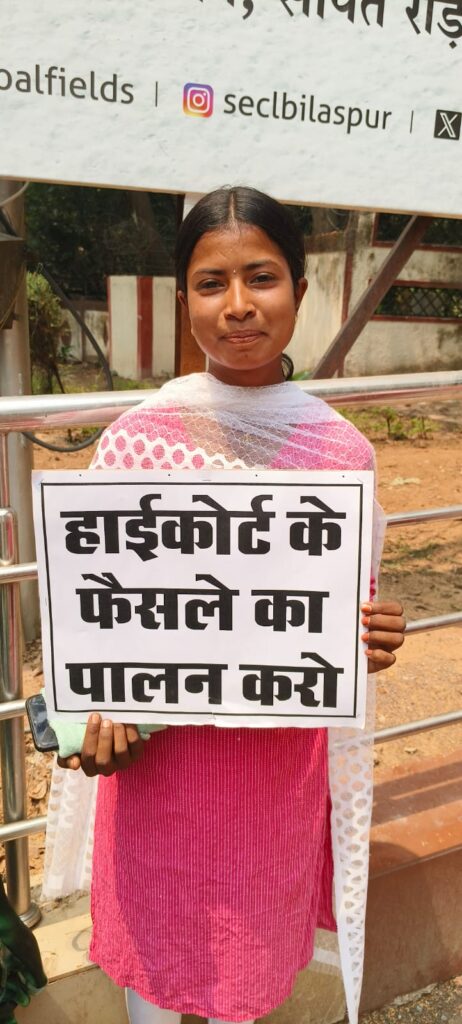 सीपत रोड
oalfields | seclbilaspur |
हाईकोर्ट के
फैसले का
पालन करो